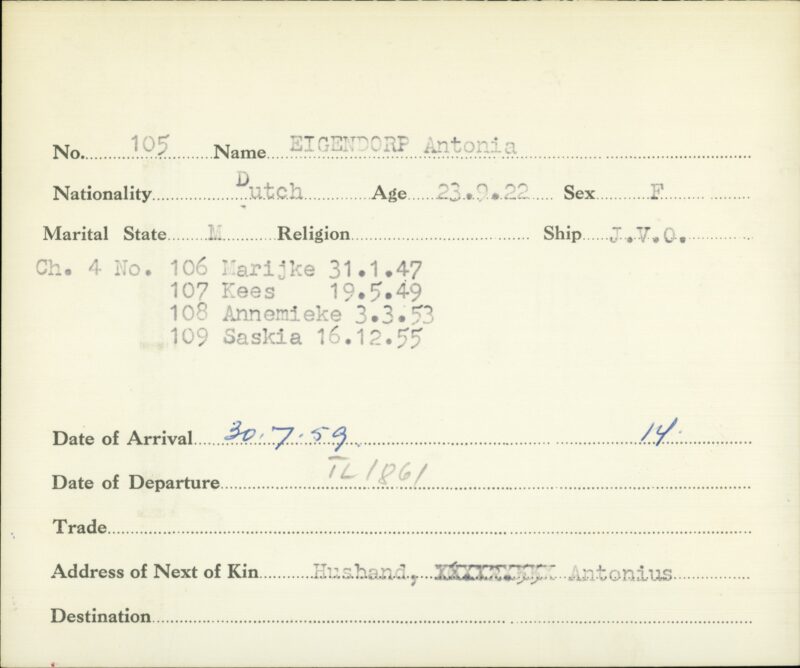 No. 105 Name EIGENDORP Antonia
Nationality Dutch Age 23.9.22 Sex F
Marital State M Religion Ship J.V.O.
Ch. 4 No. 106 Marijke 31.1.47
107 Kees 19.5.49
108 Annemieke 3.3.53
109 Saskia 16.12.55
Date of Arrival 30.7.59 14
Date of Departure IL1861
Trade
Address of Next of Kin Husband, Antonius
Destination